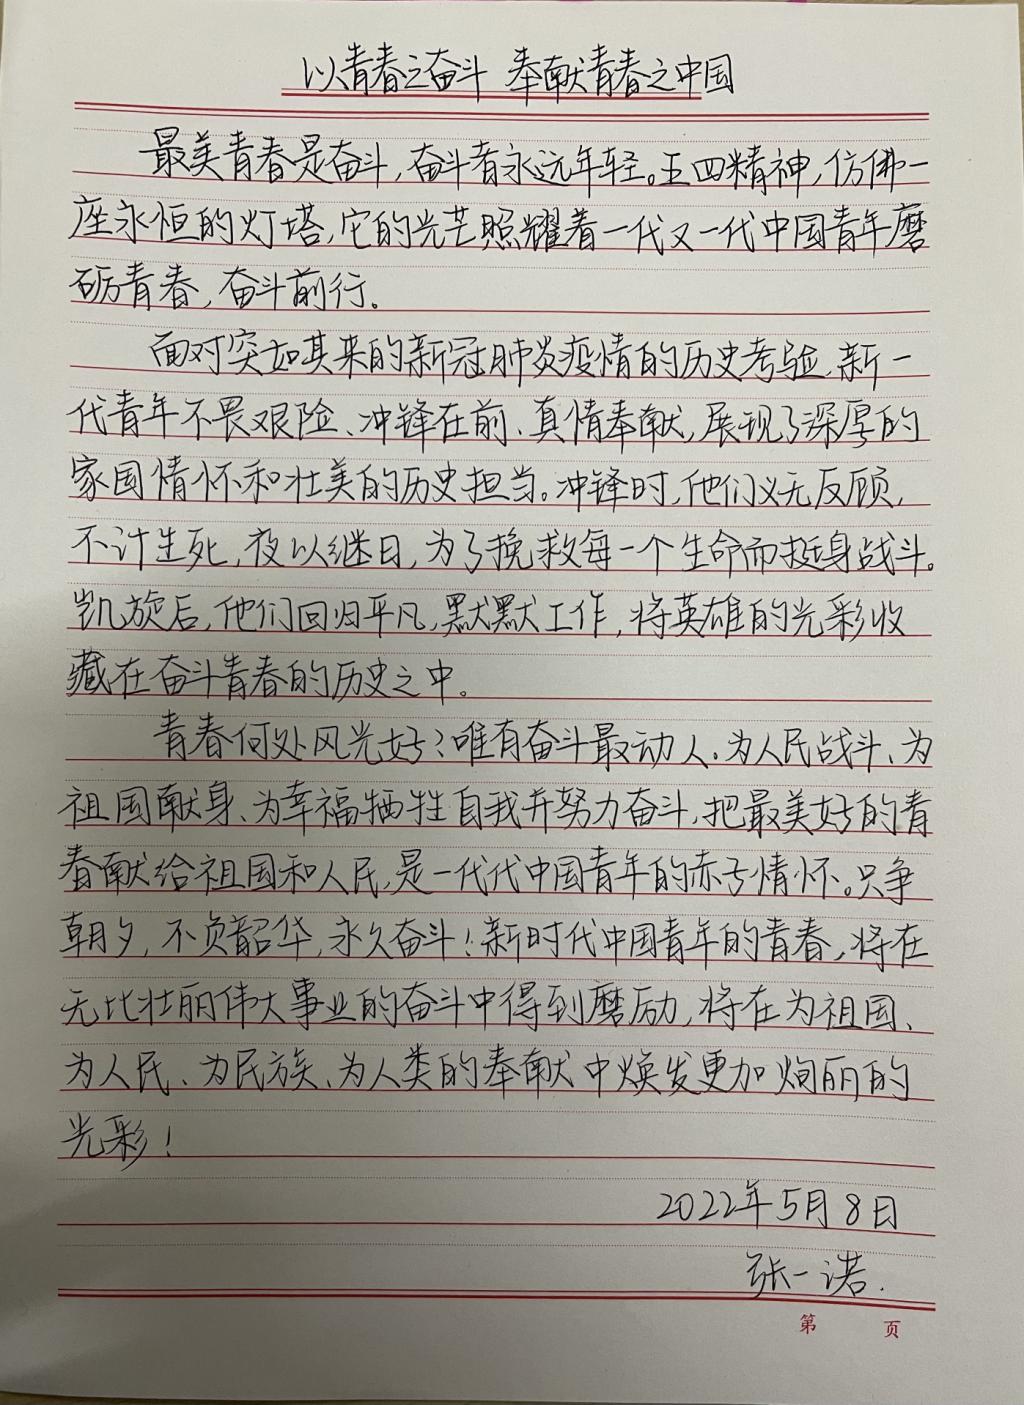 以青春之奋斗 奉献青春之中国
最美青春是奋斗,奋斗者永远年轻。五四精神,仿佛一
座永恒的灯塔,它的光芒照耀着一代又一代中国青年磨
砺青春,奋斗前行。
面对突如其来的新冠肺炎疫情的历史考验,新一
代青年不畏艰险、冲锋在前、真情奉献,展现了深厚的
家国情怀和壮美的历史担当。冲锋时,他们义无反顾,
不计生死,夜以继日,为了挽救每一个生命而挺身战斗。
凯旋后,他们回归平凡,默默工作,将英雄的光彩收
藏在奋斗青春的历史之中。
青春何处风光好?唯有奋斗最动人。为人民战斗、为
祖国献身、为幸福牺牲自我并努力奋斗,把最美好的青
春献给祖国和人民,是一代代中国青年的赤子情怀。只争
朝夕,不负韶华,永久奋斗!新时代中国青年的青春,将在
无比壮丽伟大事业的奋斗中得到磨励,将在为祖国、
为人民、为民族、为人类的奉献中焕发更加炯丽的
光彩!
2022年5月8日
张一诺.
第 页